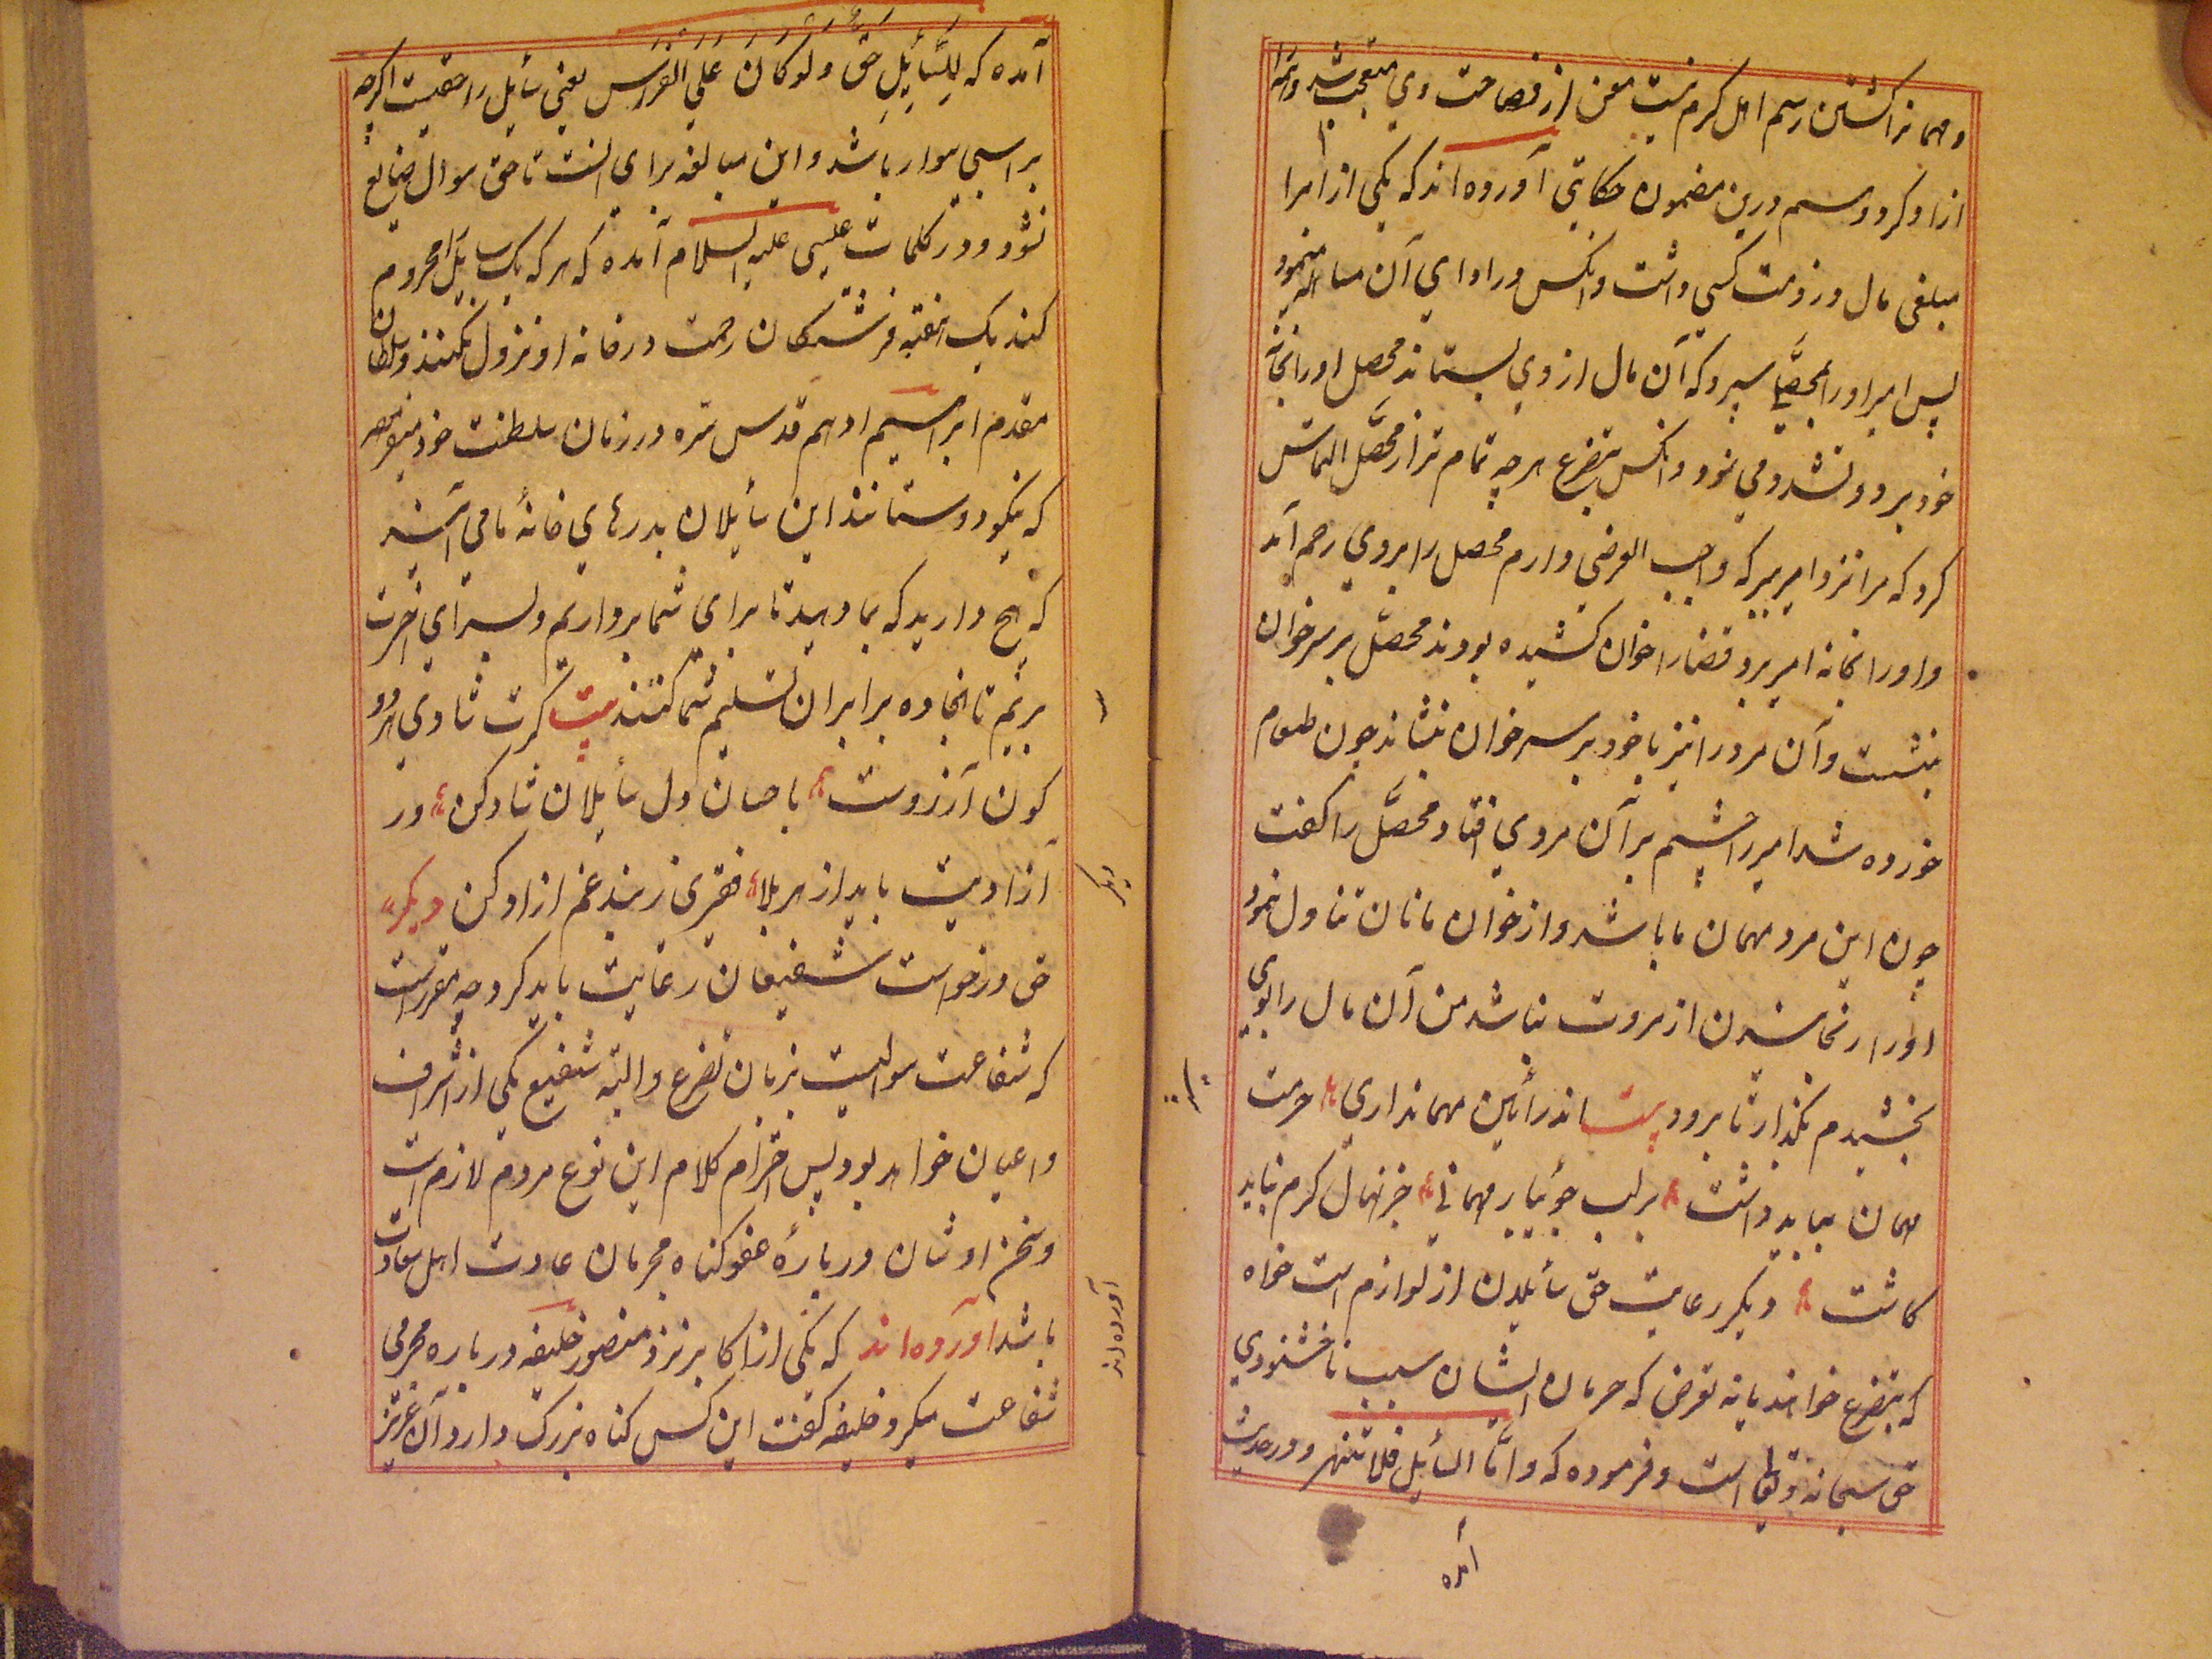 و مهمانرا کشتن رسم اهل کرم نیست معن از فصاحت وی متعجب شد و همه را
ازاد کرد و سم درین مضمون حکایتی آورده اند که یکی از امرا
مبلغی مال در ذمت کسی داشت و انکس در ادای آن مساهله مینمود
پس امیر او را بمحصلی سپرد که آن مال از وی بستاند محصل او را بخانه
خود برد و تشدد می نمود و انکس بتضرع هرچه تمام تر از محصل التماس
کرد که مرا نزد امیر بر که واجب العرضی دارم محصل را بروی رحم آمد
و او را بخانه امیر برد قضا را خوان کشیده بودند محصل بر سر خوان
بنشست و آن مرد را نیز با خود بر سر خوان بنشاند چون طعام
خورده شد امیر را چشم بر آن مرد می افتاد محصل را کفت
چون این مرد مهمان ما باشد و از خوان ما نان تناول نمود
او را رنجانیدن از مروت نباشد من آن مال را بوی
بخشیدم بکذار تا برود بیت اندر آئین مهمانداری حرمت
مهمان بباید داشت بر لب جویبار مهمانی جز نهال کرم نباید
کاشت دیکر رعایت حق سائیلان از لوازم است خواه
که بتضرع خواهند یا نه تعرض که حرمان ایشان سبب ناخشنودی
حق سبحانه و تعالی است و فرموده که و اما السائیل فلا تنهر و در حدیث
آمده
آمده که لِلسَّائِلِ حَقٌّ وَلَوْ کَانَ عَلَی الْفَرَسِ یعنی سائیل را حقیست اکرچه
بر اسبی سوار باشد و این مبالغه برای انست تا حق سوال ضایع
نشود و در کلمات عیسی علیه السلام آمده که هر که یک سایل را محروم
کند یک هفته فرشتکان رحمت در خانه او نزول نکنند و سلطان
مقدم ابراهیم ادهم قدس سره در زمان سلطنت خود میفرمود
که نیکو دوستانند این سائیلان بدرهای خانهٔ ما می آیند
که هیچ دارید که بما دهید تا برای شما برداریم و بسرای اخرت
بریم تا انجا ده برابر ان تسلیم شما کنند بیت کرت شادی هر دو
کون آرزوست باحسان دل سائیلان شاد کن ور
آزادیت باید از هر بلا فقیری ز بند غم ازاد کن دیکر
حق درخواست شفیعان رعایت باید کرد چه مقرر است
که شفاعت سوالیست بزبان تضرع و البته شفیع یکی از اشراف
و اعیان خواهد بود پس احترام کلام این نوع مردم لازم است
و سخن اوشان دربارهٔ عفو کناه مجرمان عادت اهل سعادت
باشد آورده اند که یکی از اکابر نزد منصور خلیفه درباره مجرمی
شفاعت میکرد خلیفه کفت این کس کناه بزرک دارد آن عزیز
دیکر
آورده اند